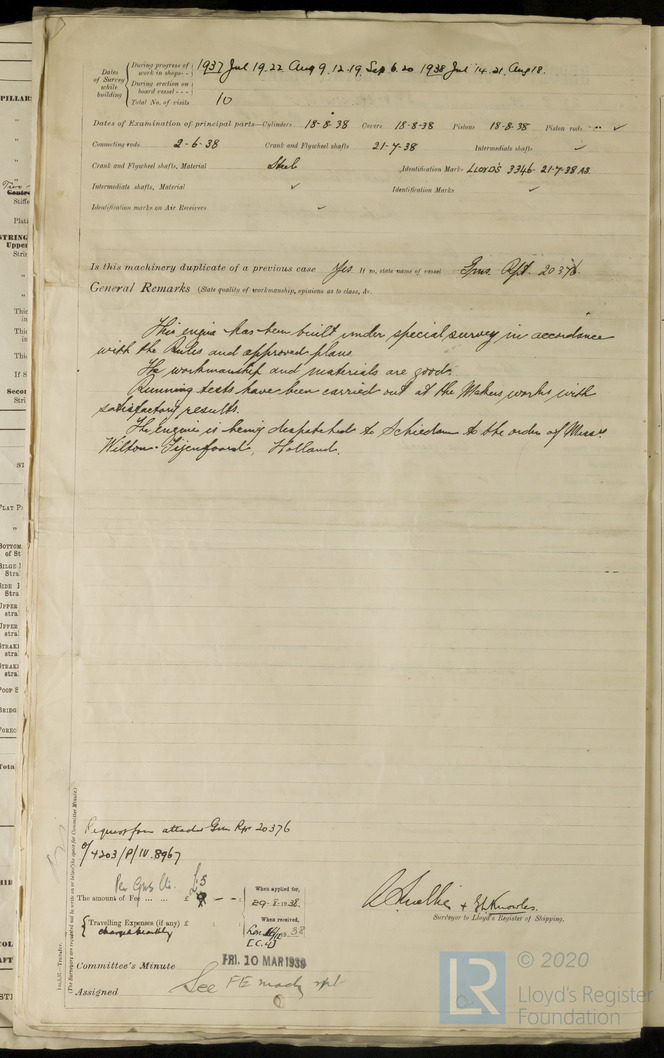 Dates of Survey while building
During progress of work in shops - - 1937 Jul 19. 22. Aug 9. 12. 19. Sep 6. 20 1938 Jul 14. 21. Aug 18.
During erection on board vessel - - -
Total No. of visits 10
Dates of Examination of principal parts—Cylinders 18-8-38 Covers 18-8-38 Pistons 18-8-38 Piston rods ✓
Connecting rods 2-6-38 Crank and Flywheel shafts 21-7-38 Intermediate shafts ✓
Crank and Flywheel shafts, Material Steel Identification Marks LLOYD'S 3346 21-7-38 AS.
Intermediate shafts, Material ✓ Identification Marks ✓
Identification marks on Air Receivers ✓
Is this machinery duplicate of a previous case Yes If so, state name of vessel Gms Rpt. 20376
General Remarks (State quality of workmanship, opinions as to class, &c.
This engine has been built under special survey in accordance
with the Rules and approved plans.
The workmanship and materials are good.
Running tests have been carried out at the Makers works with
satisfactory results.
The engine is being despatched to Schiedam to the order of Messrs.
Wilton-Fijenfoord, Holland.
Request form attached Gms Rpt 20376
4203/P/IV.8967
Per Gms Ctr. £5
The amount of Fee ... ... £ 9 - - When applied for, 29-8-1938.
Travelling Expenses (if any) £ When received,
charged monthly
Surveyor to Lloyd's Register of Shipping.
Committee's Minute FRI. 10 MAR 1939
Assigned See F.E. machy rpt
(The Surveyors are requested not to write on or below the space for Committee Minute.)
LR © 2020
Lloyd's Register
Foundation